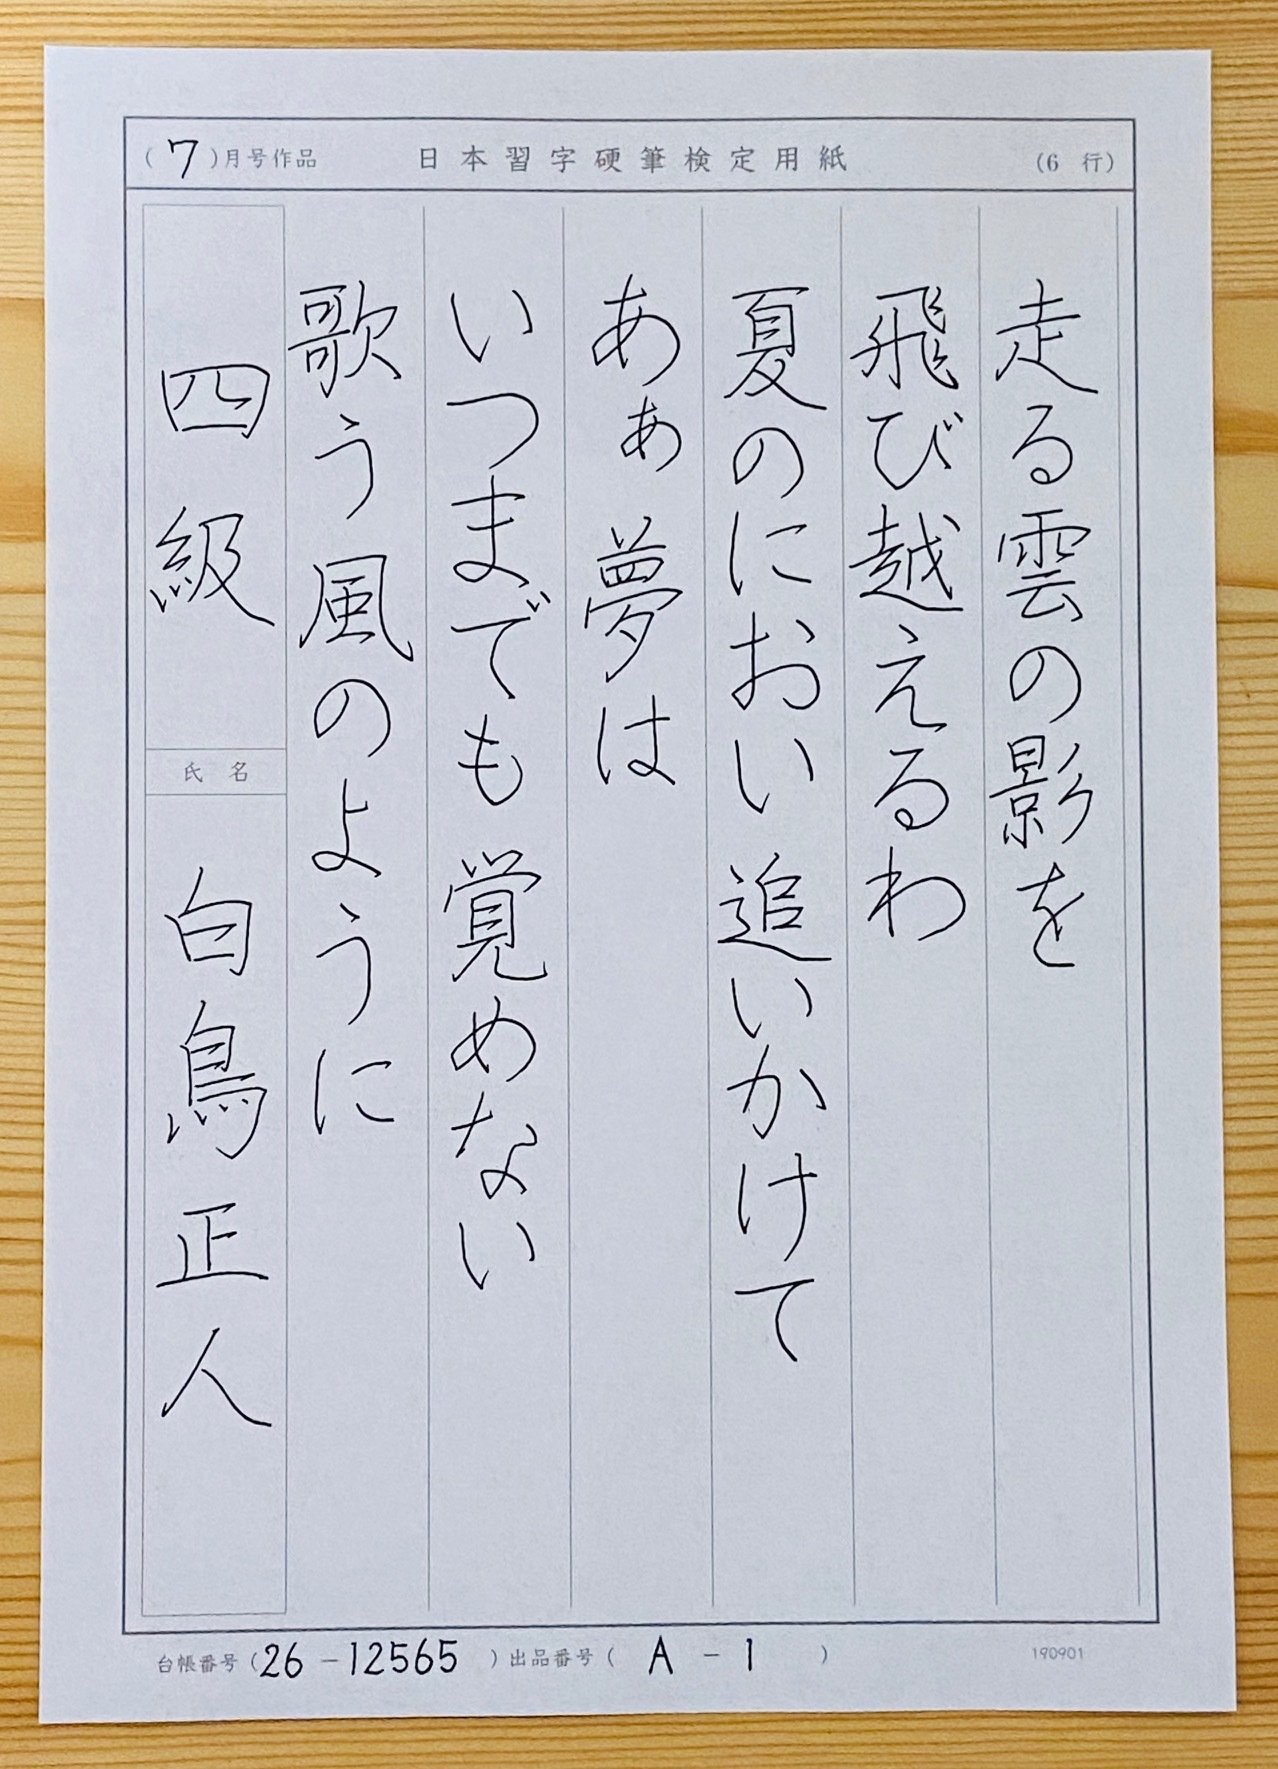 (7)月号作品 日本習字硬筆検定用紙 (6 行)
走る雲の影を
飛び越えるわ
夏のにおい追いかけて
あぁ夢は
いつまでも覚めない
歌う風のように
四級
氏名
白鳥正人
台帳番号(26-12565)出品番号(A-1) 190901